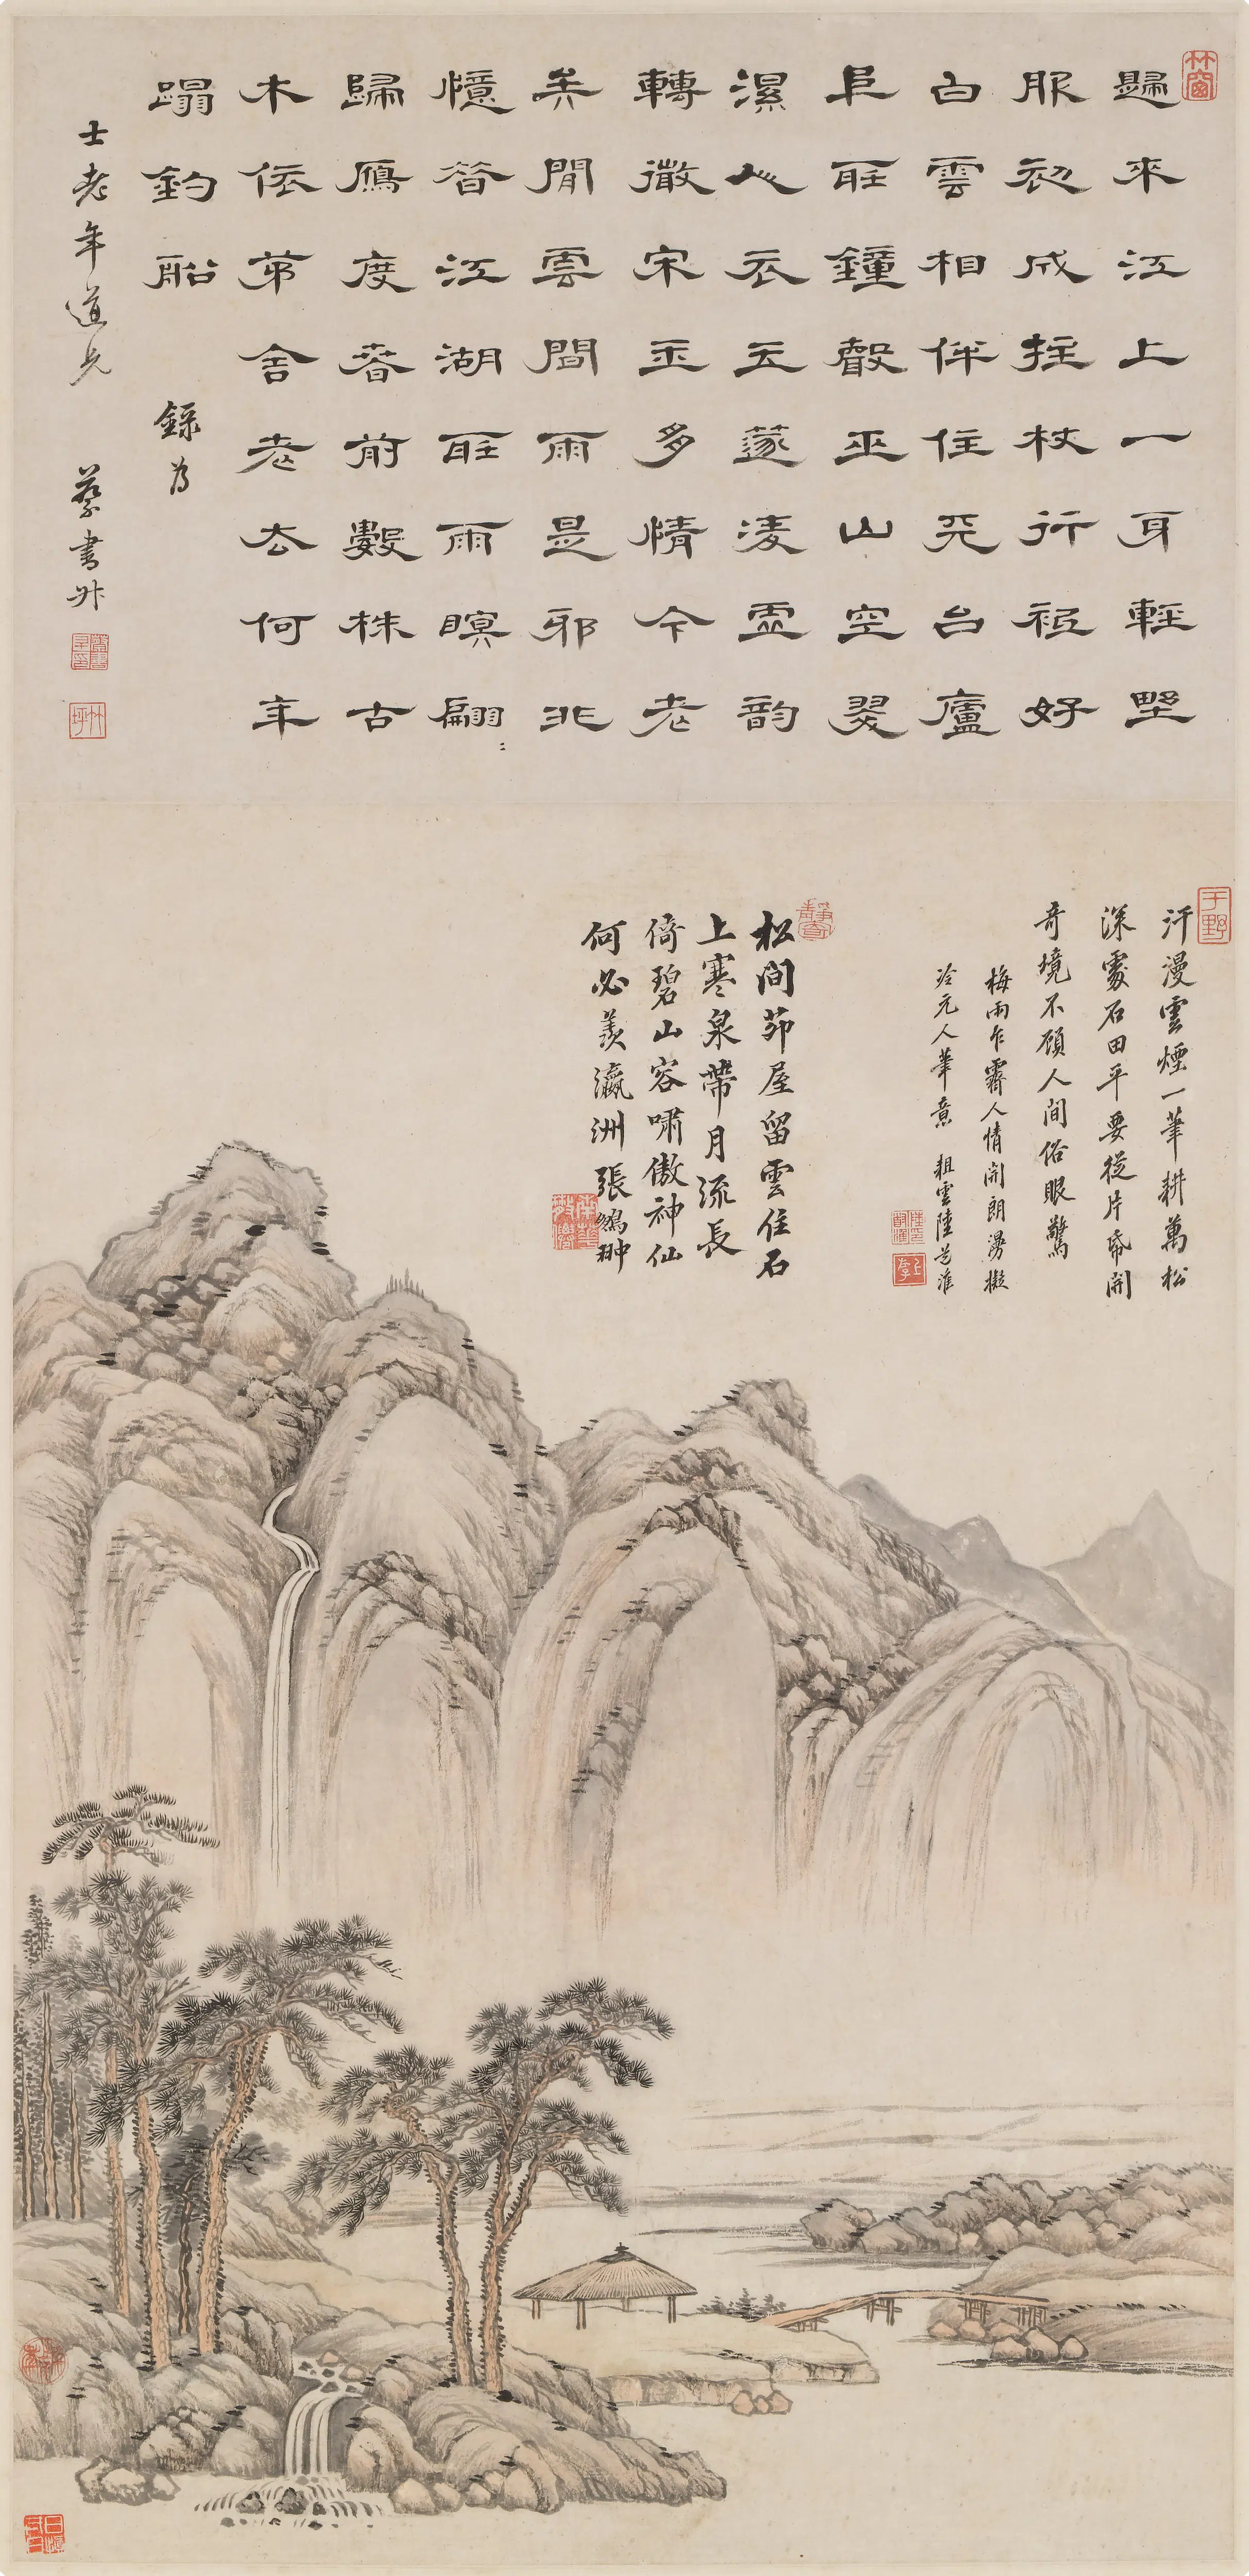 歸來江上一身輕墅
服初成拄杖行祗好
白雲相伴住天台廬
阜聽鐘聲巫山空翠
濕人衣玉蘂凌虛韵
轉微宋玉多情今老
矣閒雲閒雨是邪非
憶昔江湖聽雨瞑翩〻
歸鴈度春前數株古
木依茅舍老去何年
蹋釣船
錄為
士老年道兄
蔡書升
汗漫雲煙一筆耕萬松
深處石田平要從片帋開
奇境不顧人間俗眼驚
梅雨乍霽人情開朗漫擬
冷元人筆意 粗雲陸芝淮
松間茆屋留雲住石
上寒泉帶月流長
倚碧山容嘯傲神仙
何必羨瀛洲張鵷翀